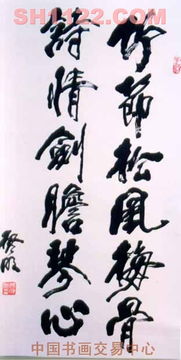 SH1122.COM
竹節松風梅骨
詩情劍膽琴心
中国书画交易中心